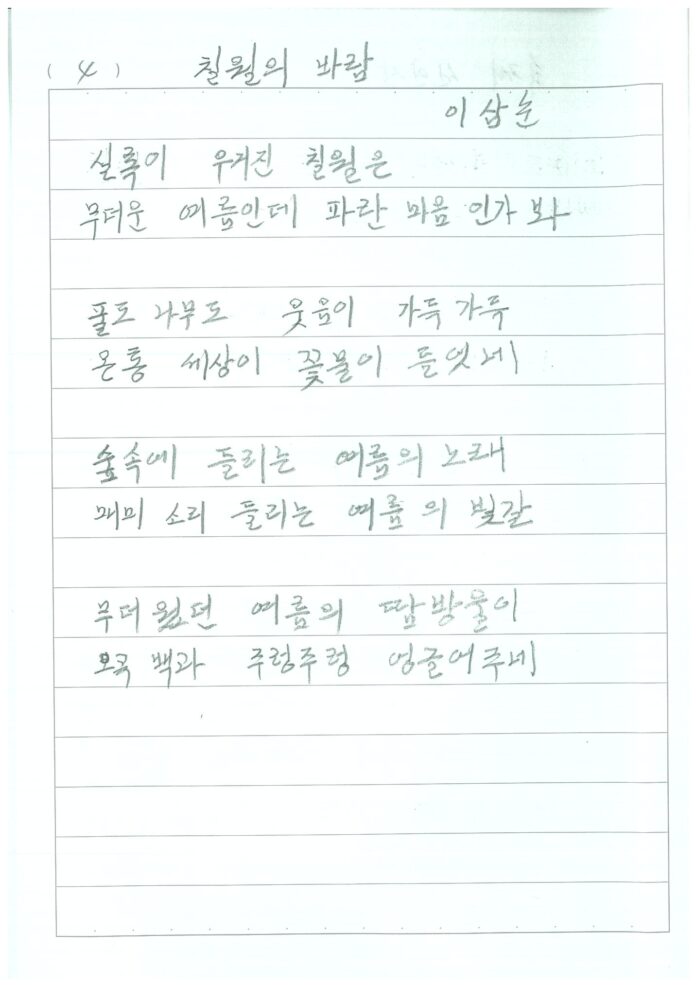 (4) 칠월의 바람
이삼순
실록이 우거진 칠월은
무더운 여름인데 파란 마음 인가 봐
풀도 나무도 웃음이 가득 가득
온통 세상이 꽃물이 들엿네
숲속에 들리는 여름의 노래
매미 소리 들리는 여름의 빛갈
무더웠던 여름의 땀방울이
오곡 백과 주렁주렁 영글어주네